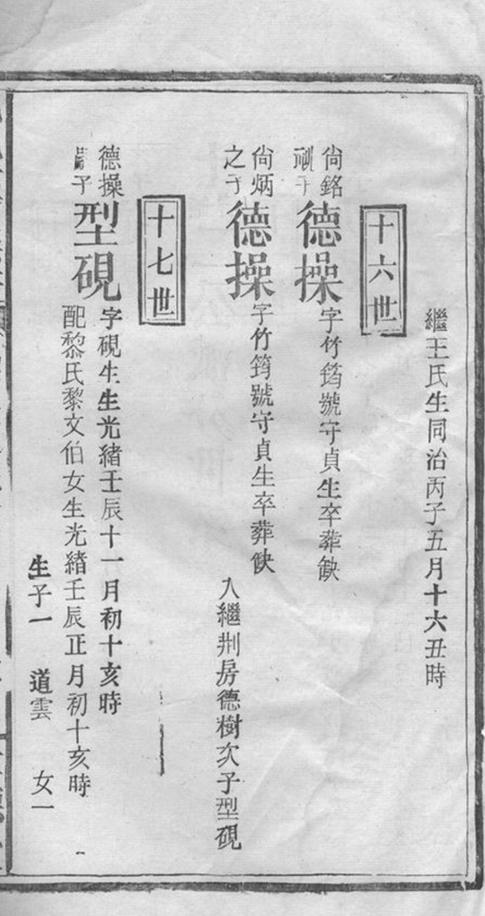 繼王氏生同治丙子五月十六丑時
十六世
尙銘
祧子
德操
字竹筠號守貞生卒葬缺
尙炳
之子
德操
字竹筠號守貞生卒葬缺
入繼荆房德樹次子型硯
十七世
德操
子
型硯
字硯生生光緒壬辰十一月初十亥時
配黎氏黎文伯女生光緒壬辰正月初十亥時
生子一 道雲 女一